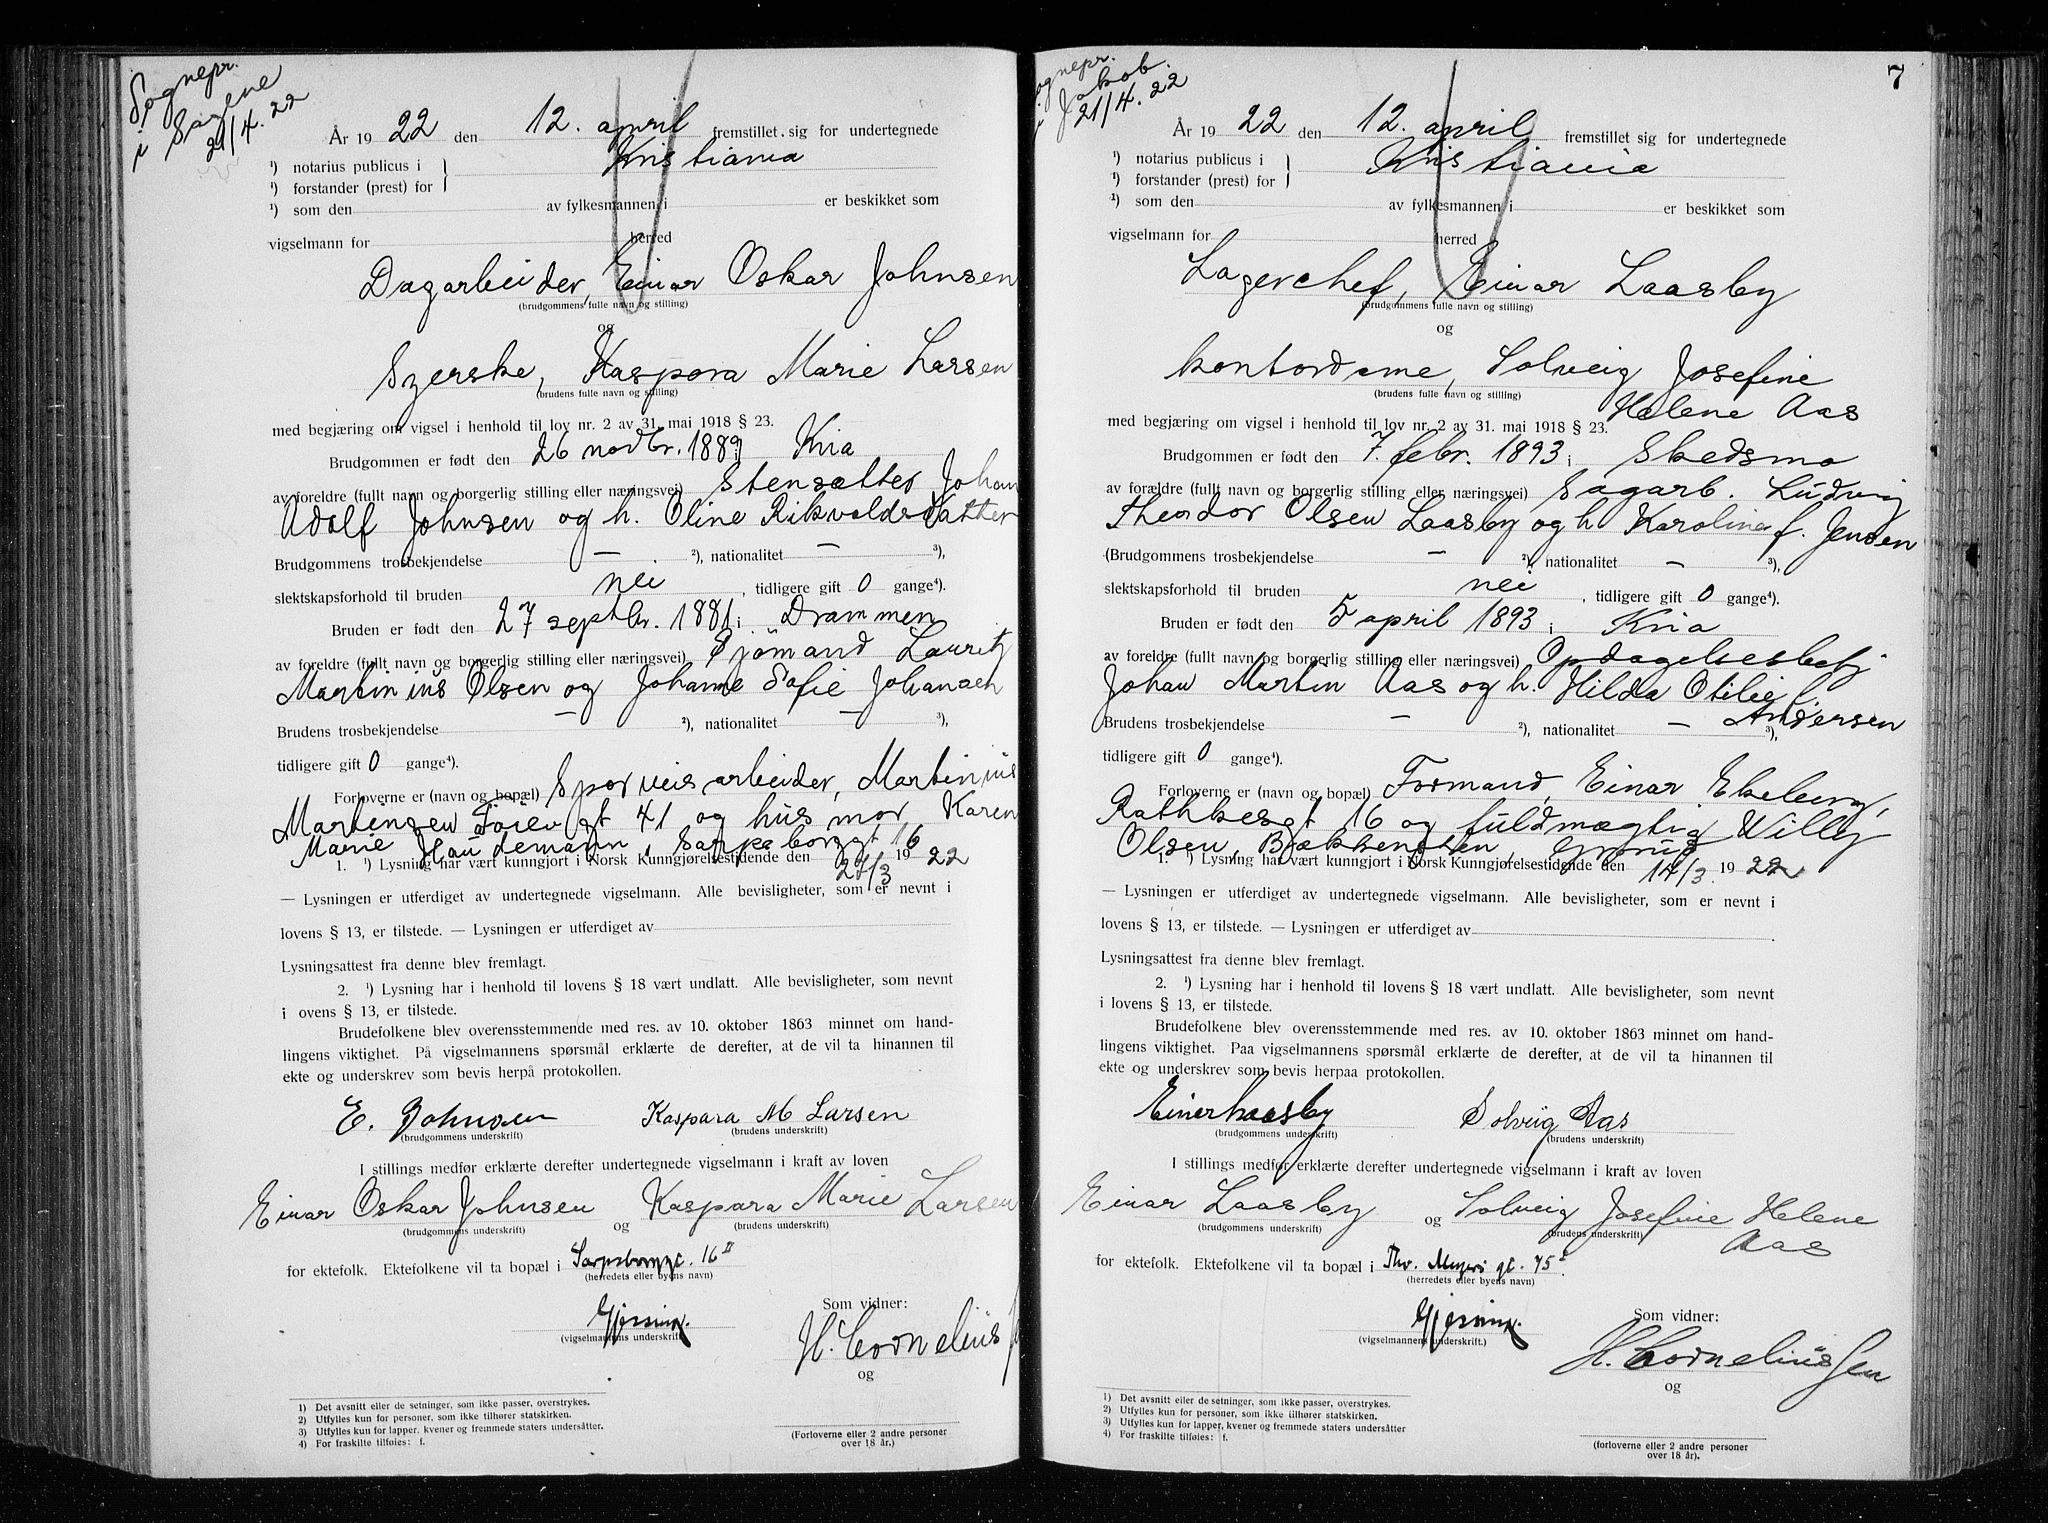 Sognepr.
i Sagene
21/4. 22
År 1922 den 12. april fremstillet sig for undertegnede
¹) notarius publicus i Kristiania
¹) forstander (prest) for
¹) som den av fylkesmannen i er beskikket som
vigselmann for herred
Dagarbeider, Einar Oskar Johnsen
(brudgommens fulle navn og stilling)
og
Syerske, Kaspara Marie Larsen
(brudens fulle navn og stilling)
med begjæring om vigsel i henhold til lov nr. 2 av 31. mai 1918 § 23.
Brudgommen er født den 26 novbr. 1889 i Kria
av foreldre (fullt navn og borgerlig stilling eller næringsvei) Stensætter Johan
Adolf Johnsen og h. Oline Rikvoldsdatter
Brudgommens trosbekjendelse — ²), nationalitet — ³),
slektskapsforhold til bruden nei, tidligere gift 0 gange⁴).
Bruden er født den 27 septbr. 1881 i Drammen
av foreldre (fullt navn og borgerlig stilling eller næringsvei) Sjømand Lauritz
Martinius Olsen og Johanne Sofie Johansen
Brudens trosbekjendelse — ²), nationalitet — ³),
tidligere gift 0 gange⁴).
Forloverne er (navn og bopæl) Sporveisarbeider, Martinius
Martinsen gt 41 og husmor Karen
Marie Haudemann, Sarpsborggt 16
1. ¹) Lysning har vært kunngjort i Norsk Kunngjørelsestidende den 24/3 1922
— Lysningen er utferdiget av undertegnede vigselmann. Alle bevisligheter, som er nevnt i
lovens § 13, er tilstede. — Lysningen er utferdiget av
Lysningsattest fra denne blev fremlagt.
2. ¹) Lysning har i henhold til lovens § 18 vært undlatt. Alle bevisligheter, som nevnt
i ovens § 13, er tilstede.
Brudefolkene blev overensstemmende med res. av 10. oktober 1863 minnet om hand-
lingens viktighet. På vigselmannens spørsmål erklærte de derefter, at de vil ta hinannen til
ekte og underskrev som bevis herpå protokollen.
E. Johnsen Kaspara M Larsen
(brudgommens underskrift) (brudens underskrift)
I stillings medfør erklærte derefter undertegnede vigselmann i kraft av loven
Einar Oskar Johnsen og Kaspara Marie Larsen
(brudgommens underskrift) (brudens underskrift)
for ektefolk. Ektefolkene vil ta bopæl i Sarpsborggt. 16 II
(herredets eller byens navn)
Gjessing. Som vidner:
(vigselmannens underskrift) H. Cornelius
og
1) Det avsnitt eller de setninger, som ikke passer, overstrykes.
2) Utfylles kun for personer, som ikke tilhører statskirken.
3) Utfylles kun for lapper, kvener og fremmede staters undersåtter.
4) For fraskilte tilføies: f.
(Forloverne eller 2 andre personer
over 18 år.)
7
ognepr.
i Jakob.
21/4. 22
År 1922 den 12. april fremstillet sig for undertegnede
¹) notarius publicus i Kristiania
¹) forstander (prest) for
¹) som den av fylkesmannen i er beskikket som
vigselmann for herred
Lagerchef, Einar Laasby
(brudgommens fulle navn og stilling)
og
kontordame, Solveig Josefine
(brudens fulle navn og stilling) Helene Aas
med begjæring om vigsel i henhold til lov nr. 2 av 31. mai 1918 § 23.
Brudgommen er født den 7. febr. 1893 i Skedsmo
av forældre (fullt navn og borgerlig stilling eller næringsvei) Sagarb. Ludvig
Theodor Olsen Laasby og h Karoline f. Jensen
(Brudgommens trosbekjendelse — ²), nationalitet — ³),
slektskapsforhold til bruden nei, tidligere gift 0 gange⁴).
Bruden er født den 5 april 1893 i Kria
av foreldre (fullt navn og borgerlig stilling eller næringsvei) Opdagelsesbetj
Johan Martin Aas og h. Hilda Otilie f
Brudens trosbekjendelse — ²), nationalitet — Andersen ³),
tidligere gift 0 gange⁴).
Forloverne er (navn og bopæl) Formand, Einar Ekeberg,
Rathkesgt 16 og fuldmægtig Willy
Olsen, Grorud
1. ¹) Lysning har vært kunngjort i Norsk Kunngjørelsestidende den 14/3. 1922
— Lysningen er utferdiget av undertegnede vigselmann. Alle bevisligheter, som er nevnt i
lovens § 13, er tilstede. — Lysningen er utferdiget av
Lysningsattest fra denne blev fremlagt.
2. ¹) Lysning har i henhold til lovens § 18 vært undlatt. Alle bevisligheter, som nevnt
i lovens § 13, er tilstede.
Brudefolkene blev overensstemmende med res. av 10. oktober 1863 minnet om hand-
lingens viktighet. Paa vigselmannens spørsmål erklærte de derefter, at de vil ta hinannen til
ekte og underskrev som bevis herpaa protokollen.
Einar Laasby Solveig Aas
(brudgommens underskrift) (brudens underskrift)
I stillings medfør erklærte derefter undertegnede vigselmann i kraft av loven
Einar Laasby og Solveig Josefine Helene
(brudgommens underskrift) (brudens underskrift) Aas
for ektefolk. Ektefolkene vil ta bopæl i Thv. Meyers gt. 75 I.
(herredets eller byens navn)
Gjessing. Som vidner:
(vigselmannens underskrift.) H. Corneliussen
og
1) Det avsnitt eller de setninger, som ikke passer, overstrykes.
2) Utfylles kun for personer, som ikke tilhører statskirken.
3) Utfylles kun for lapper, kvener og fremmede staters undersåtter
4) For fraskilte tilføies: f.
(forloverne eller 2 andre personer
over 18 år).